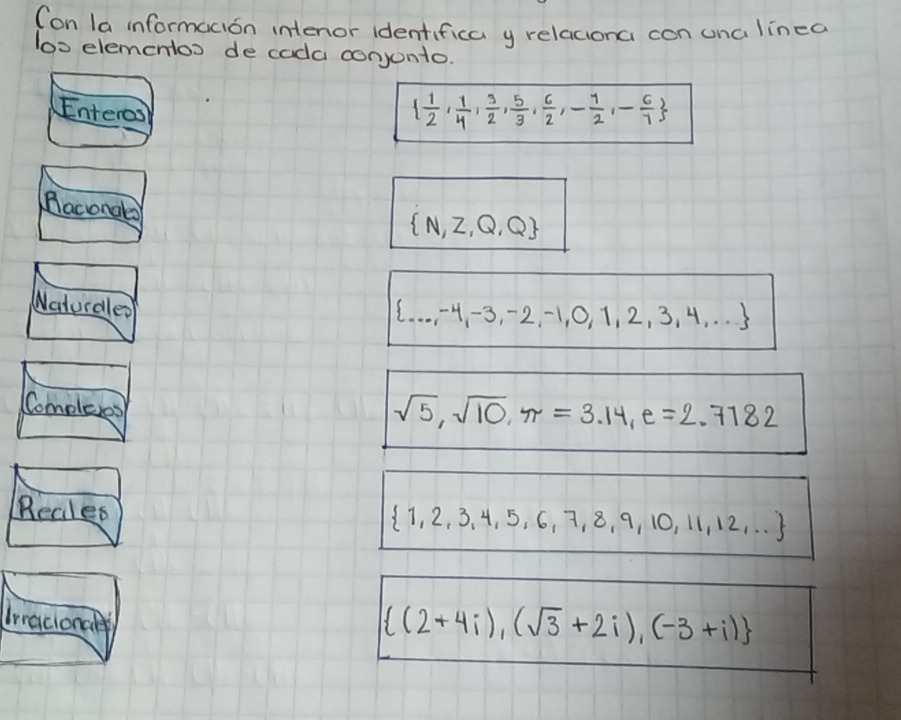 Con la información interior identifica y relaciona con una línea
los elementos de cada conjunto.
Enteros
{1/2, 1/4, 3/2, 5/3, 6/2, -1/2, -6/1}
Racionales
{N, Z, Q, Q}
Naturales
{...,-4,-3,-2,-1,0,1,2,3,4,...}
Complejos
√5, √10, π = 3.14, e = 2.7182
Reales
{1,2,3,4,5,6,7,8,9,10,11,12,...}
Irracionales
{(2+4i),(√3+2i),(-3+i)}